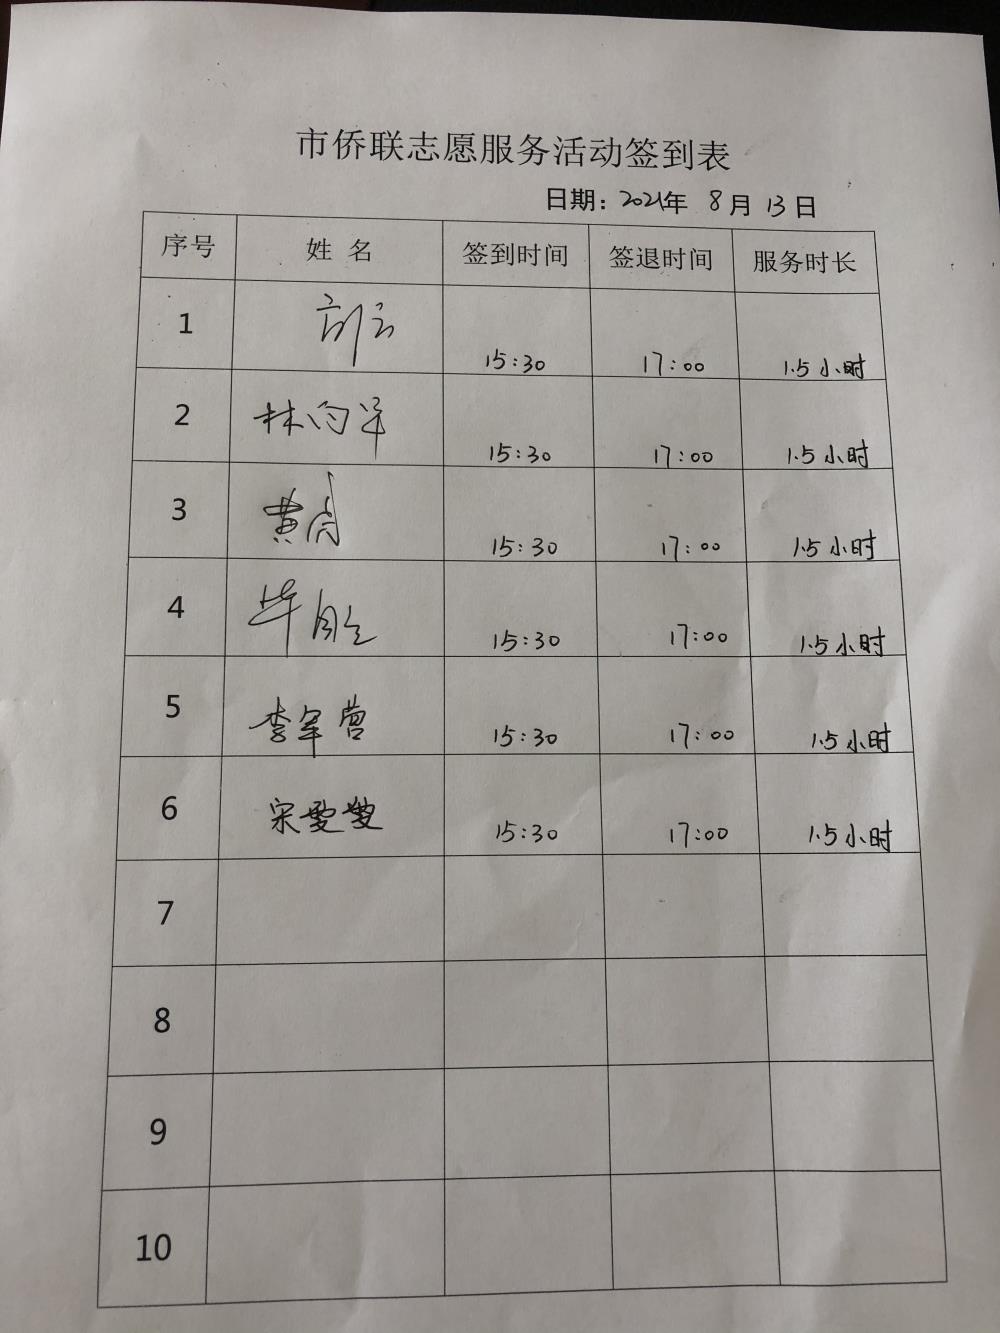 市侨联志愿服务活动签到表
日期：2021年 8月 13日
序号 姓 名 签到时间 签退时间 服务时长
1 15:30 17:00 1.5小时
2 15:30 17:00 1.5小时
3 15:30 17:00 1.5小时
4 15:30 17:00 1.5小时
5 李军营 15:30 17:00 1.5小时
6 宋雯雯 15:30 17:00 1.5小时
7
8
9
10